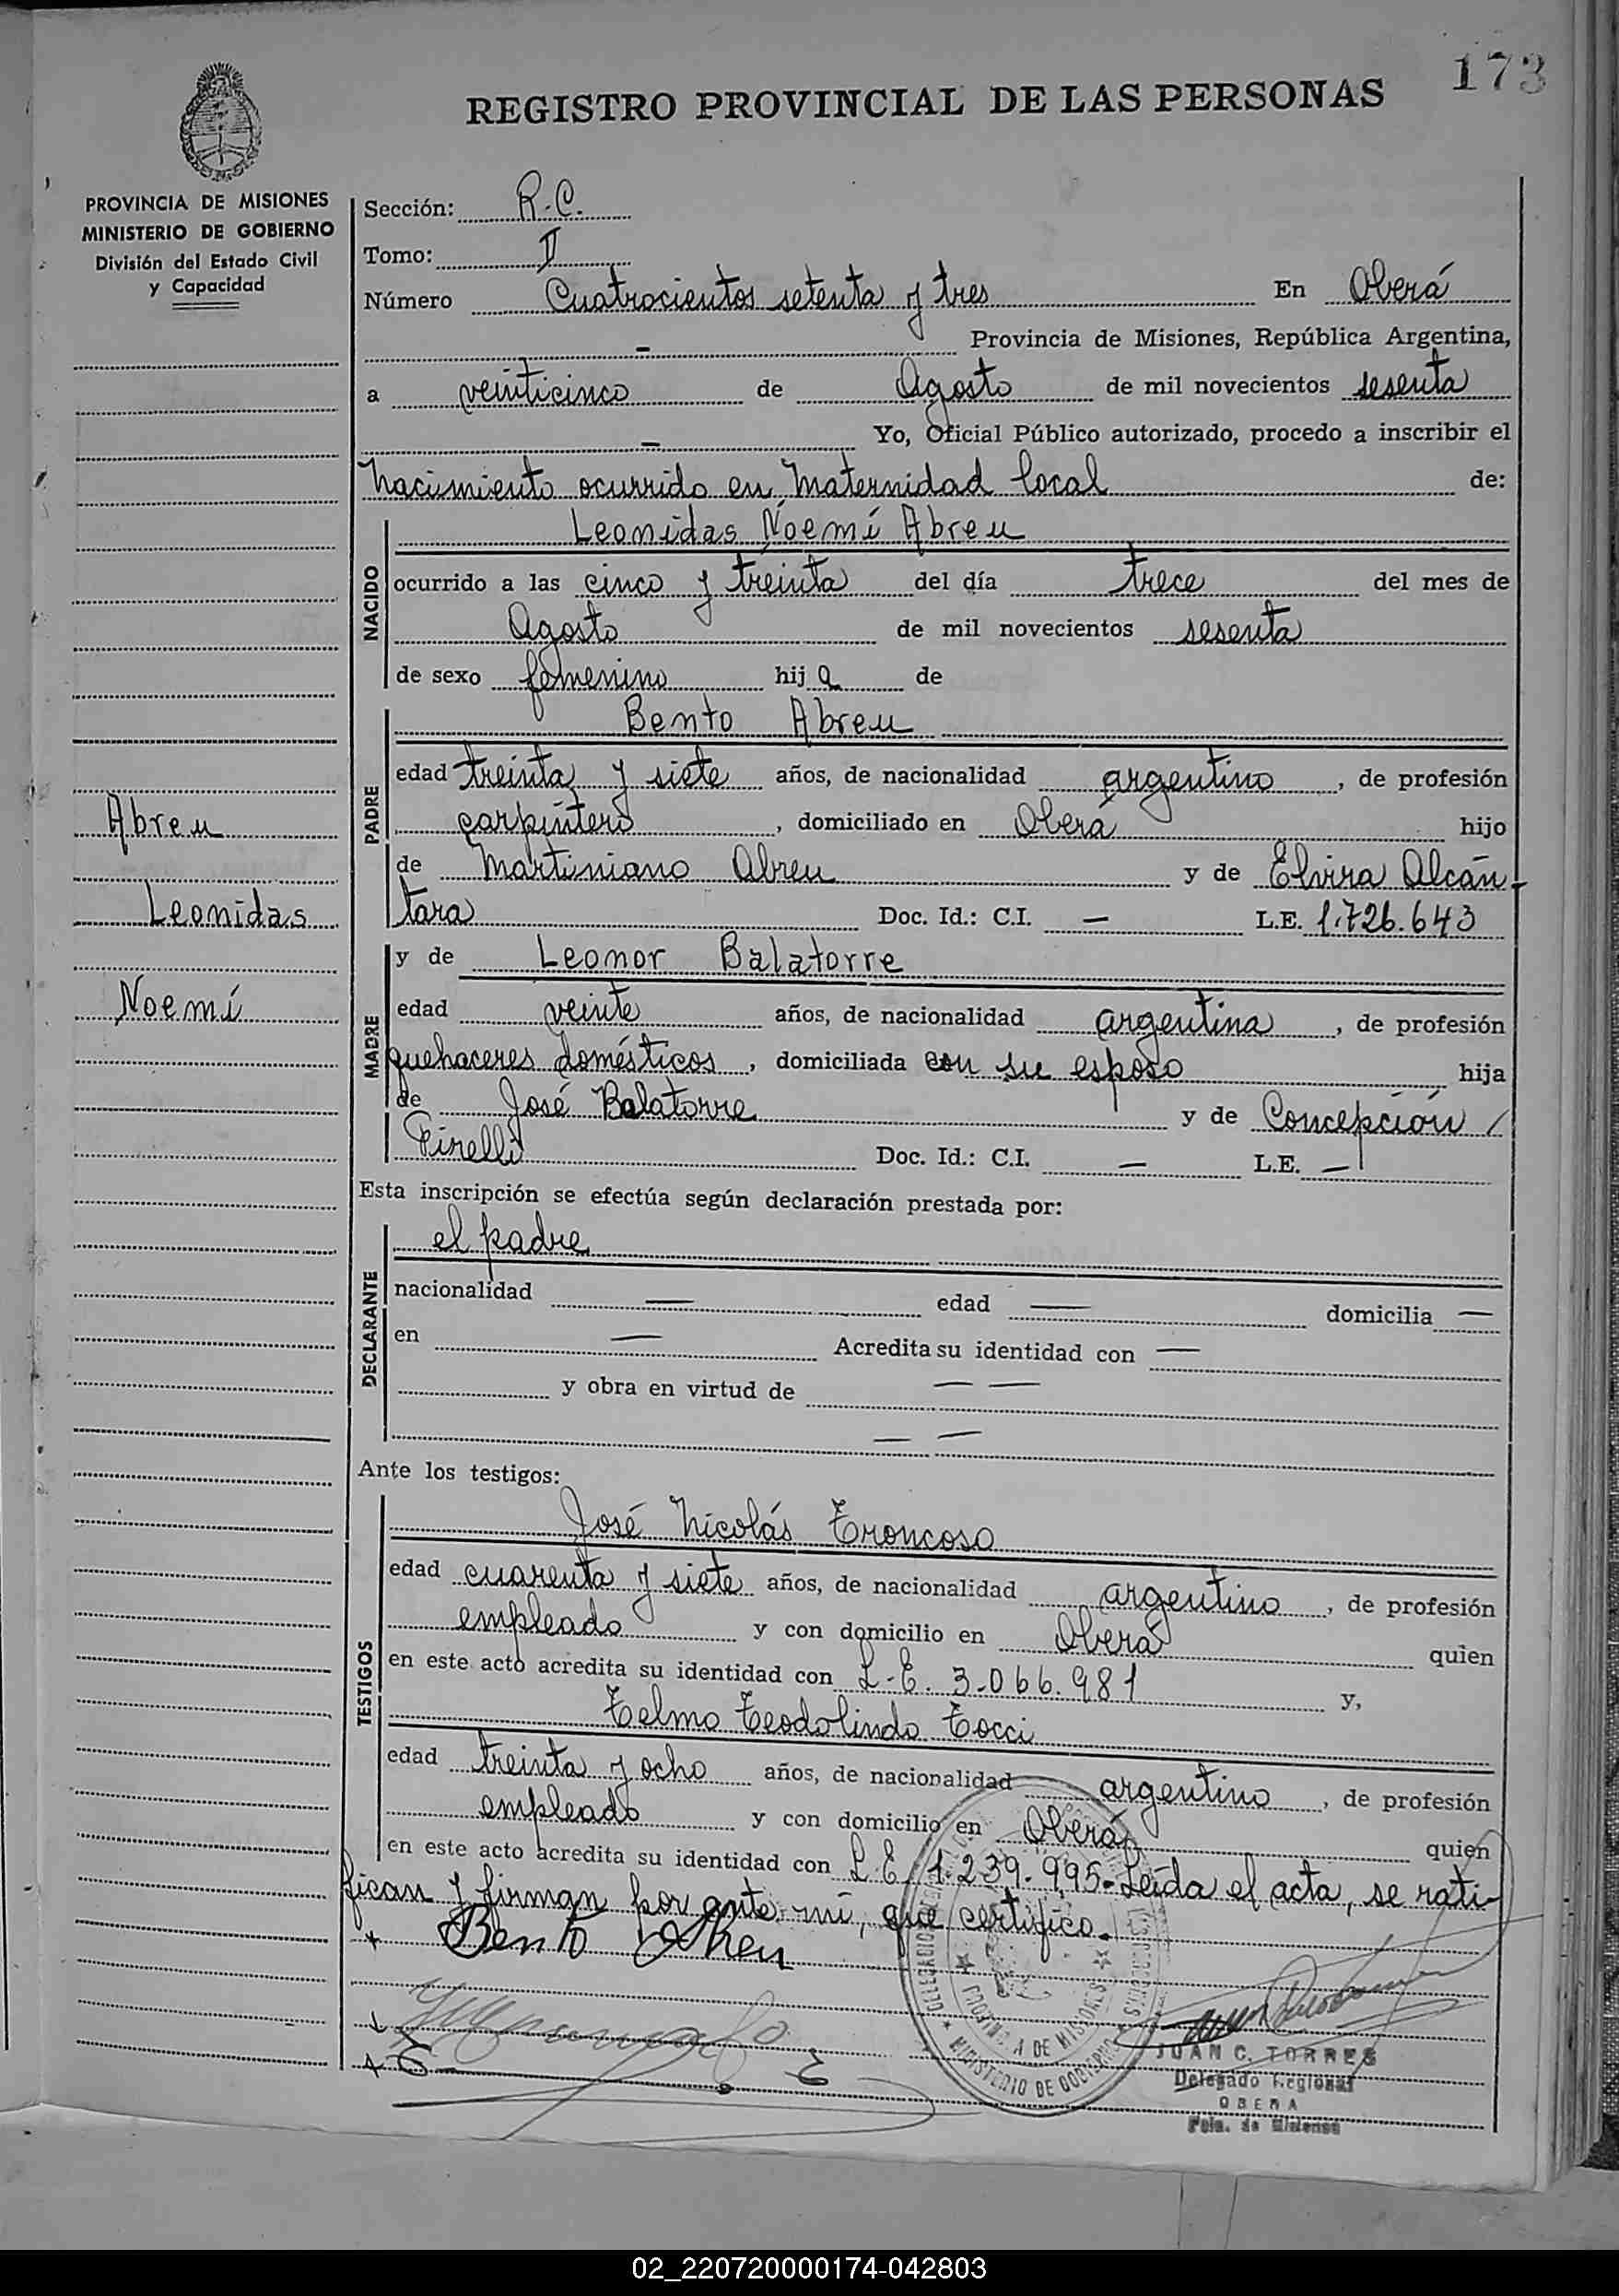 173
REGISTRO PROVINCIAL DE LAS PERSONAS
PROVINCIA DE MISIONES
MINISTERIO DE GOBIERNO
División del Estado Civil
y Capacidad
Abreu
Leonidas
Noemí
Sección: R.C.
Tomo: II
Número Cuatrocientos setenta y tres En Oberá
– Provincia de Misiones, República Argentina,
a veinticinco de Agosto de mil novecientos sesenta
– Yo, Oficial Público autorizado, procedo a inscribir el
nacimiento ocurrido en Maternidad local de:
NACIDO
Leonidas Noemí Abreu
ocurrido a las cinco y treinta del día trece del mes de
Agosto de mil novecientos sesenta
de sexo femenino hija de
PADRE
Bento Abreu
edad treinta y siete años, de nacionalidad argentino, de profesión
carpintero, domiciliado en Oberá hijo
de Martiniano Abreu y de Elvira Alcán-
tara Doc. Id.: C.I. — L.E. 1.726.643
MADRE
y de Leonor Balatorre
edad veinte años, de nacionalidad argentina, de profesión
quehaceres domésticos, domiciliada con su esposo hija
de José Balatorre y de Concepción /
Pirelli Doc. Id.: C.I. — L.E. —
Esta inscripción se efectúa según declaración prestada por:
DECLARANTE
el padre
nacionalidad — edad — domicilia —
en — Acredita su identidad con —
y obra en virtud de — —
— —
Ante los testigos:
TESTIGOS
José Nicolás Troncoso
edad cuarenta y siete años, de nacionalidad argentino, de profesión
empleado y con domicilio en Oberá quien
en este acto acredita su identidad con L.E. 3.066.981 y,
Telmo Teodolindo Tocci
edad treinta y ocho años, de nacionalidad argentino, de profesión
empleado y con domicilio en Oberá quien
en este acto acredita su identidad con L.E. 1.239.995.- Leída el acta, se rati-
fican y firman por ante mí, que certifico.
Bento Abreu
MINISTERIO DE GOBIERNO
DE MISIONES
JUAN C. TORRES
Delegado Regional
OBERA
Pcia. de Misiones
02_220720000174-042803